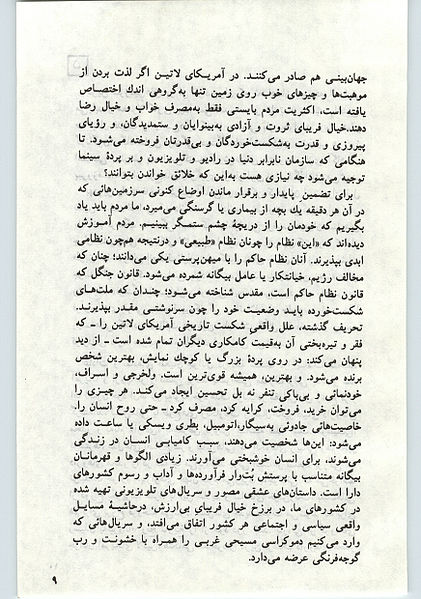 جهان‌بینی هم صادر می‌کنند. در آمریکای لاتین اگر لذت بردن از
موهبت‌ها و چیزهای خوب روی زمین تنها به‌گروهی اندك اختصاص
یافته است، اکثریت مردم بایستی فقط به‌مصرف خواب و خیال رضا
دهند.خیال فریبای ثروت و آزادی به‌بینوایان و ستمدیدگان، و رؤیای
پیروزی و قدرت به‌شکست‌خوردگان و بی‌قدرتان فروخته می‌شود. تا
هنگامی که سازمان نابرابر دنیا در رادیو و تلویزیون و بر پردهٔ سینما
توجیه می‌شود چه نیازی هست به‌این که خلائق خواندن بتوانند؟
برای تضمین پایدار و برقرار ماندن اوضاع کنونی سرزمین‌هائی که
در آن هر دقیقه یك بچه از بیماری یا گرسنگی می‌میرد، ما مردم باید یاد
بگیریم که خودمان را از دریچهٔ چشم ستمگر ببینیم. مردم آمـوزش
دیده‌اند که «این» نظام را چونان نظام «طبیعی» و درنتیجه هم‌چون نظامی
ابدی بپذیرند. آنان نظام حاکم را با میهن‌پرستی یکی می‌دانند؛ چنان که
مخالف رژیم، خیانتکار یا عامل بیگانه شمرده می‌شود. قانون جنگل که
قانون نظام حاکم است، مقدس شناخته می‌شـود؛ چنـدان که ملت‌هـای
شکست‌خورده باید وضعیت خود را چون سرنوشتی مقدر بپذیرنـد.
تحریف گذشته، علل واقعی شکست تاریخی آمریکای لاتین را ــ که
فقر و تیره‌بختی آن به‌قیمت کامکاری دیگران تمام شده است ــ از دید
پنهان می‌کند: در روی پردهٔ بزرگ یا کوچك نمایش، بهترین شخص
برنده می‌شود. و بهترین، همیشه قوی‌ترین است. ولخرجی و اسـراف،
خودنمائی و بی‌باکی تنفر نه بل تحسین ایجاد می‌کنـد. هر چیـزی را
می‌توان خرید، فروخت، کرایه کرد، مصرف کرد ــ حتی روح انسان را.
خاصیت‌هائی جادوئی به‌سیگار،اتومبیل، بطری ویسکی یا ساعت داده
می‌شود: این‌ها شخصیت می‌دهند، سبـب کامیابـی انسـان در زندگـی
می‌شوند، برای انسان خوشبختی می‌آورند. زیادی الگوها و قهرمانان
بیگانه متناسب با پرستش بُت‌وار فرآورده‌ها و آداب و رسوم کشورهای
دارا است. داستان‌های عشقی مصور و سریال‌های تلویزیونی تهیه شده
در کشورهای ما، در برزخ خیال فریبای بی‌ارزش، درحاشیـهٔ مسایـل
واقعی سیاسی و اجتماعی هر کشور اتفاق می‌افتد، و سریال‌هائی که
وارد می‌کنیم دموکراسی مسیحی غربـی را همـراه با خشونت و رب
گوجه‌فرنگی عرضه می‌دارد.
۹